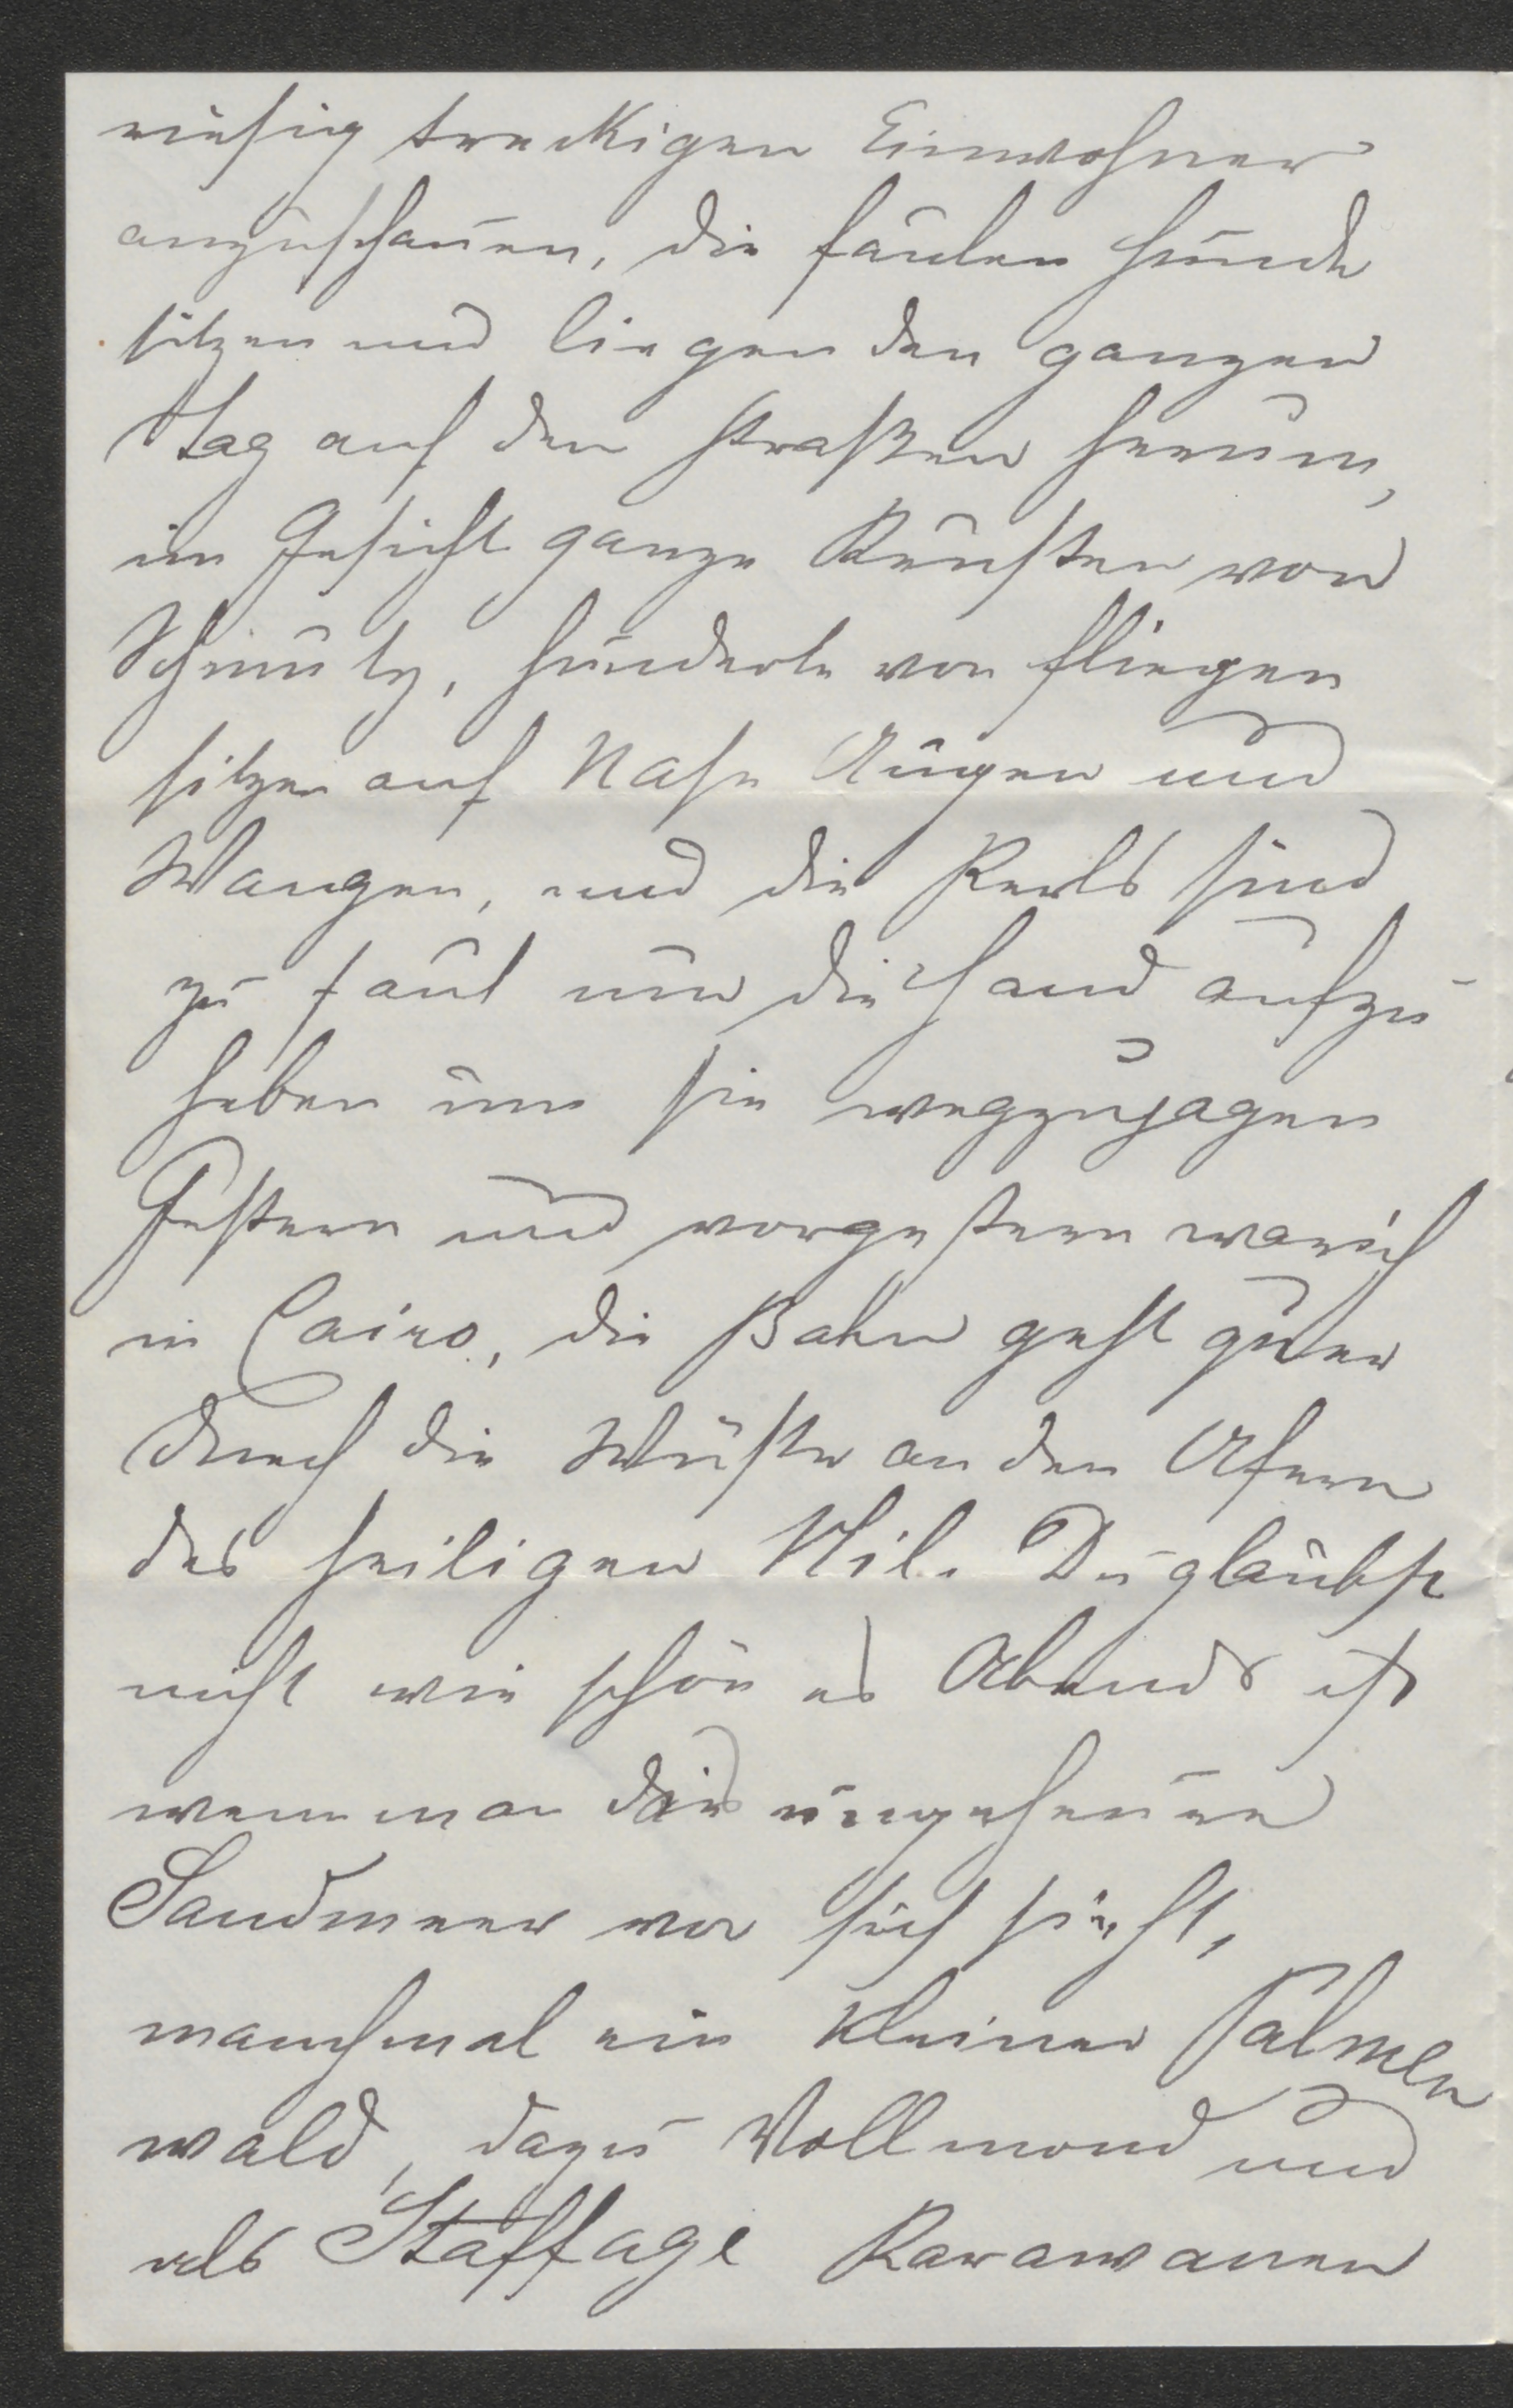 riesig treckigen Einwohner
anzuschauen, die faulen Hunde
sitzen und liegen den ganzen
Tag auf den Straßen herum,
im Gesicht ganze Krusten von
Schmutz, hunderte von Fliegen
sitzen auf Nase Augen und
Wangen, und die Kerls sind
zu faul um die Hand aufzu
heben um sie wegzujagen
Gestern und vorgestern war ich
in Cairo, die Bahn geht quer
durch die Wüste an den Ufern
des heiligen Nil. Du glaubst
nicht wie schön es Abends ist
wenn man das ungeheure
Sandmeer vor sich sieht,
manchmal ein kleiner Palmen
wald, dazu Vollmond und
als Staffage Karawanen